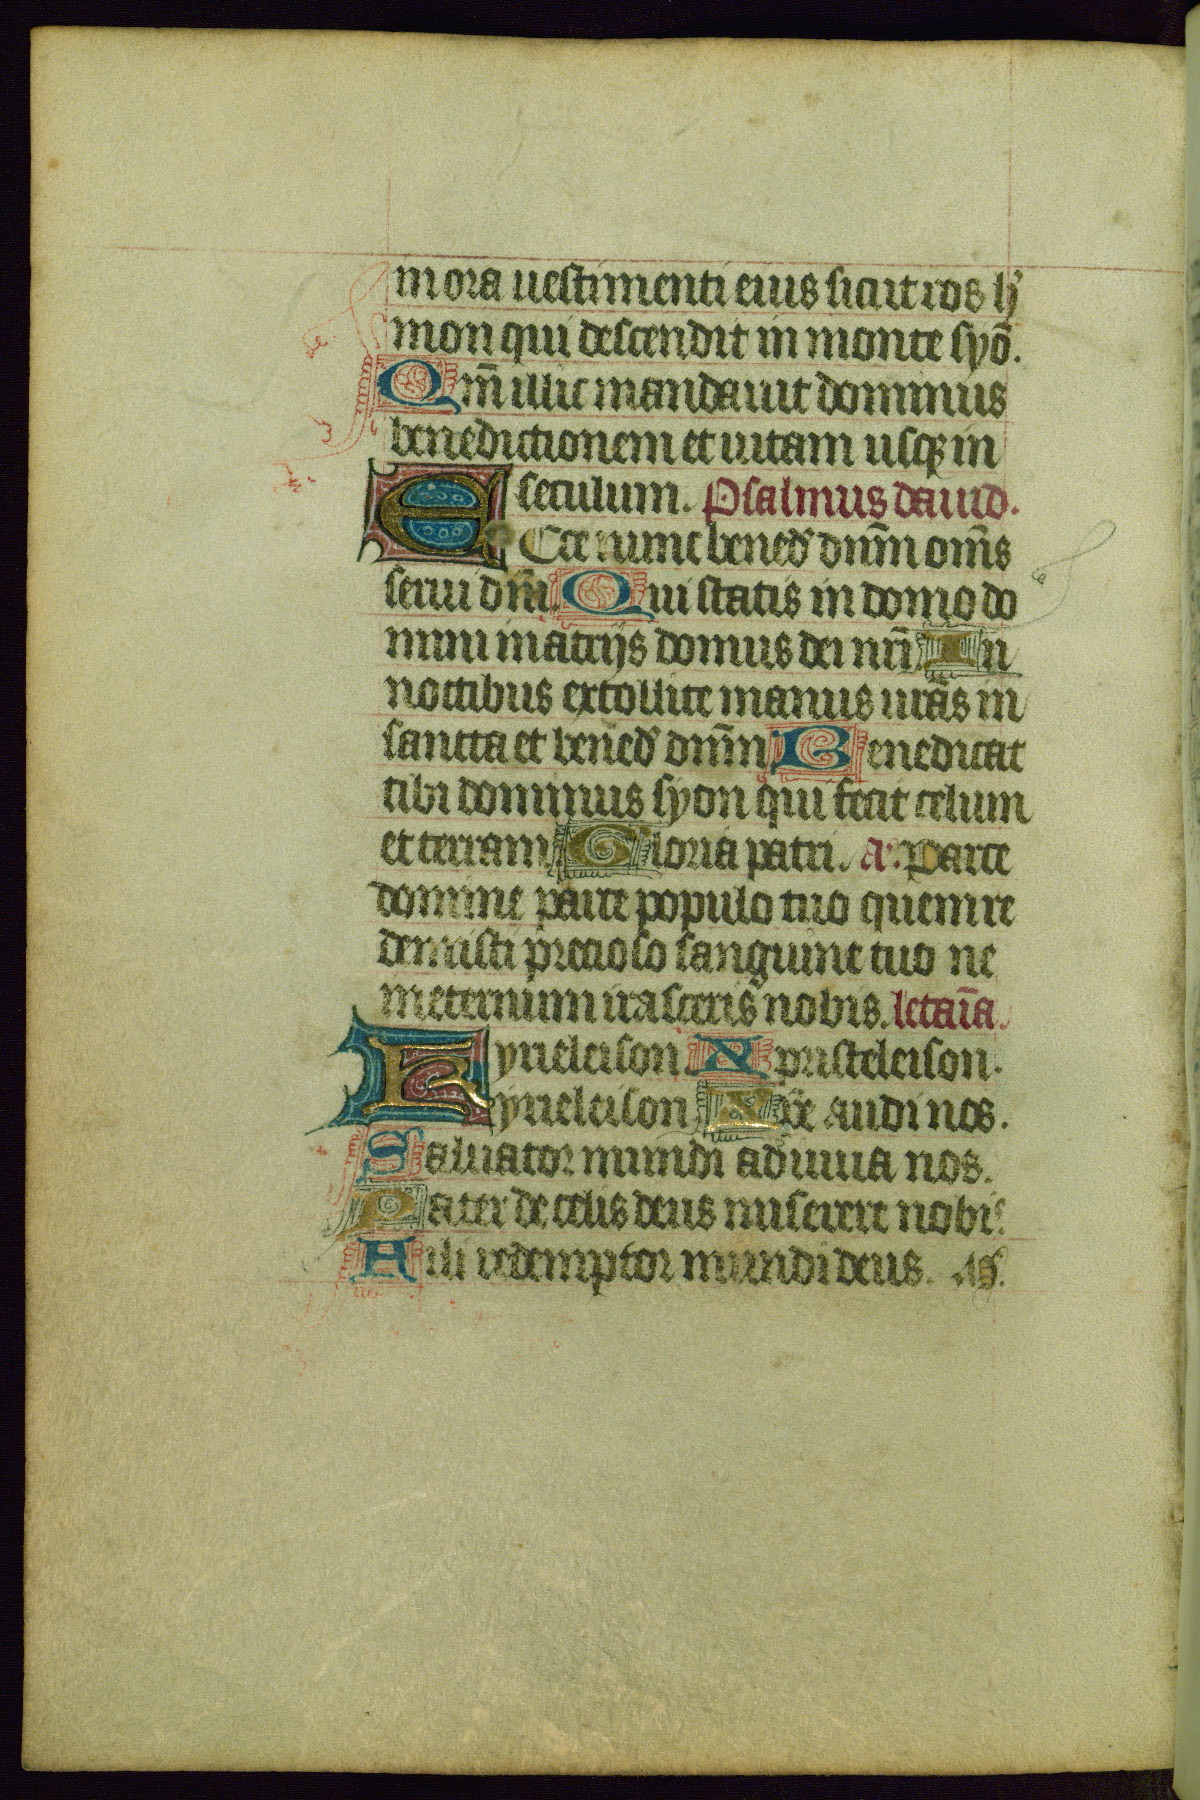 mora uestimenti eius sicut ros h'
mon qui descendit in monte syō.
Qm̄ illic mandauit dominus
benedictionem et uitam usqꝫ in
seculum. Psalmus dauid.
ECce nunc bened' dnm̄ om̄s
serui dn̄i. Qui statis in domo do
mini in atrijs domus dei nr̄i. In
noctibus extollite manus ur̄as in
sancta et bened' dnm̄. Benedicat
tibi dominus syon qui fecit celum
et terram. Gloria patri. A'. Parce
domine parce populo tuo quem re
demisti precioso sanguine tuo ne
in eternum irasceris nobis. letaīa.
Kyrieleison. Xpristeleison.
Kyrieleison. Xp̄e audi nos.
Saluator mundi adiuua nos.
Pater de celis deus miserere nobis.
Fili redemptor mundi deus.